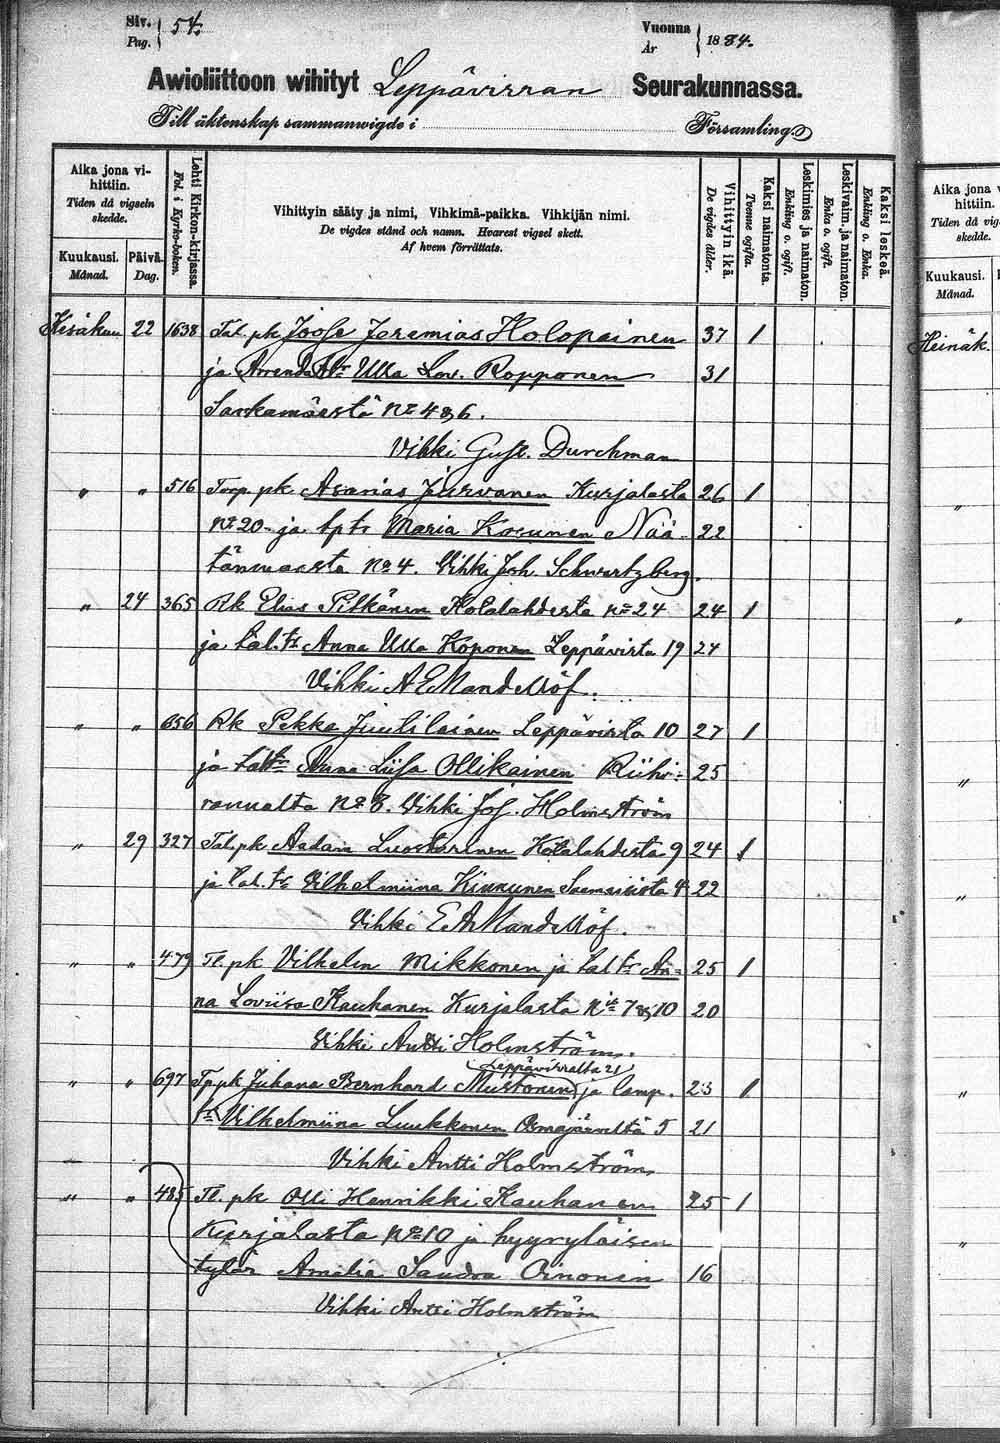 Siv. Pag. 54.
Vuonna År 1884.
Awioliittoon wihityt Leppävirran Seurakunnassa.
Till äktenskap sammanwigde i Församling.
Aika jona vihittiin.
Tiden då vigseln skedde.
Kuukausi. Månad.
Päivä. Dag.
Lehti Kirkon-kirjassa.
Fol. i Kyrko-boken.
Vihittyin sääty ja nimi, Vihkimä-paikka. Vihkijän nimi.
De vigdes stånd och namn. Hvarest vigsel skett.
Af hvem förrättats.
Vihittyin ikä.
De vigdes ålder.
Kaksi naimatonta.
Tvenne ogifta.
Leskimies ja naimaton.
Enkling o. ogift.
Leskivaim. ja naimaton.
Enka o. ogift.
Kaksi leskeä.
Enkling o. Enka.
Kesäkuu 22 1638 Tal. pk Joose Jeremias Holopainen 37 1
ja Ulla Lov. Ropponen 31
Sarkamäestä No 4 & 6.
Vihki Gust. Durchman
" " 516 Torp. pk Asarias Jurvanen Kurjalasta 26 1
No 20 ja tptr Maria Kosunen Nää- 22
tänmaasta No 4. Vihki Joh. Schwartzberg.
" 24 365 Rk Elias Pitkänen Kotalahdesta No 24 24 1
ja tal. tr Anna Ulla Koponen Leppävirta 19 24
Vihki A E Mandellöf.
" " 656 Rk Pekka Juutilainen Leppävirta 10 27 1
ja taltr Anna Liisa Ollikainen Riihi- 25
rannalta No 8. Vihki Jos. Holmström
" 29 327 Tal. pk Aadam Luostarinen Kotalahdesta 9 24 1
ja tal. tr Vilhelmiina Kinnunen Saamaisista 4 22
Vihki Mandellöf.
" " 479 Tl. pk Vilhelm Mikkonen ja tal tr An- 25 1
na Loviisa Kauhanen Kurjalasta No 7 & 10 20
Vihki Antti Holmström.
Leppävirralta 21
" " 697 Tp pk Juhana Bernhard Mustonen ja lamp. 23 1
tr Vilhelmiina Luukkonen Osmajärveltä 5 21
Vihki Antti Holmström
" " 485 Tl. pk Olli Henrikki Kauhanen 25 1
Kurjalasta No 10 ja hyyryläisen
tytär Amalia Sandra Oinonen 16
Vihki Antti Holmström
Aika jona
hittiin.
Tiden då vig
skedde.
Kuukausi.
Månad.
Heinäk.
"
"
"
"
"
"